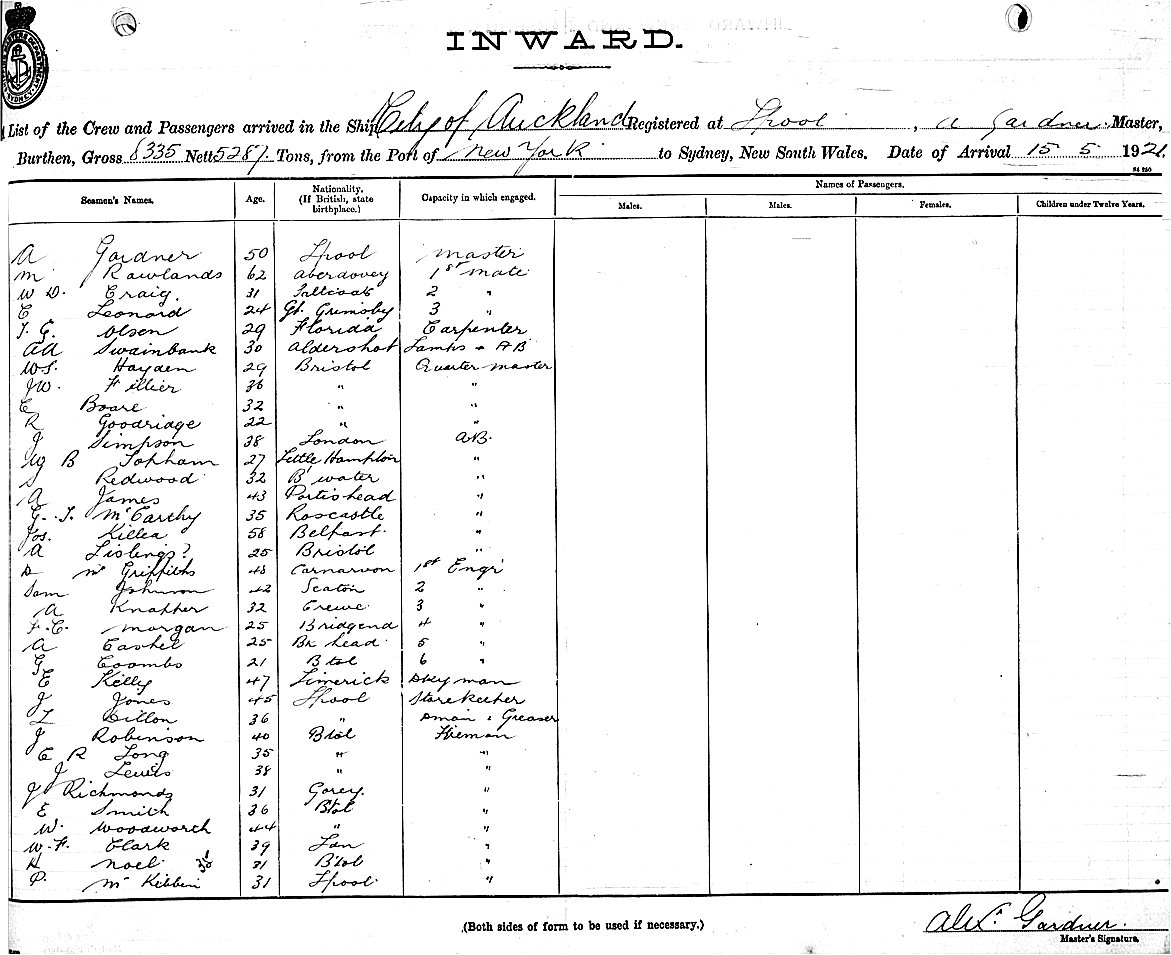 INWARD.
List of the Crew and Passengers arrived in the Ship City of Auckland Registered at Lpool, A Gardner Master,
Burthen, Gross 8335 Nett 5287 Tons, from the Port of New York to Sydney, New South Wales. Date of Arrival 15 5 1921.
Seamen's Names. Age. Nationality. (If British, state birthplace.) Capacity in which engaged. Names of Passengers.
Males. Males. Females. Children under Twelve Years.
A Gardner 50 Lpool Master
M Rowlands 62 Aberdovey 1st Mate
W D. Craig. 31 Saltcoats 2 "
C Leonard 24 Gt. Grimsby 3 "
T. G. Olsen 29 Florida Carpenter
AA Swainbank 30 Aldershot Lamps & AB
WS. Hayden 29 Bristol Quarter master
JW. Fillier 36 " "
C Boare 32 " "
R Goodridge 22 " "
J Simpson 38 London AB.
Wg B Topham 27 Little Hampton "
S Redwood 32 B'water "
A James 43 Portishead "
G. T. McCarthy 35 Roscastle "
Jos. Killea 58 Belfast "
A Lislings? 25 Bristol "
D M Griffiths 48 Carnarvon 1st Engr
Sam Johnson 42 Seaton 2 "
A Knapper 32 Crewe 3 "
F. C. Morgan 25 Bridgend 4 "
A Cashel 25 Bk head 5 "
G Coombs 21 Btol 6 "
E Kelly 47 Limerick Dkeyman
J Jones 45 Lpool Storekeeper
L Dillon 36 " Dman & Greaser
J Robinson 40 Btol Fireman
C R Long 35 " "
J Lewis 38 " "
J Richmonds 31 Gorey. "
E Smith 36 Btol "
W. Woodworth 44 " "
W. F. Clark 39 Lon "
H Noel 31 B'tol "
P. McKibbin 31 Lpool "
(Both sides of form to be used if necessary.)
Alexr Gardner.
Master's Signature.